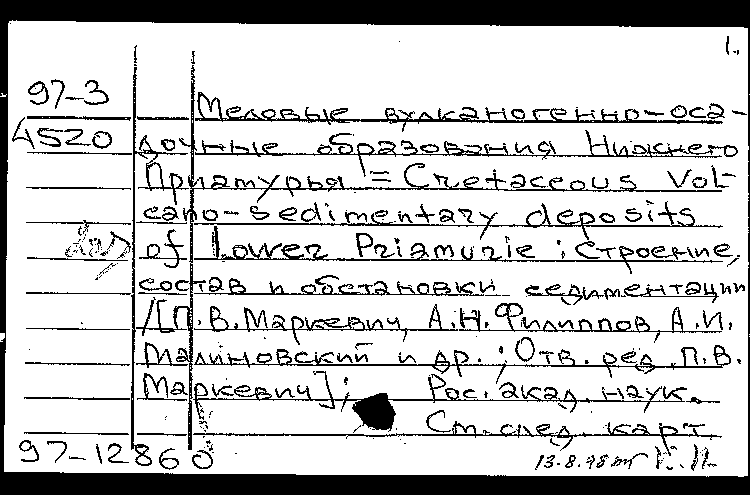 1.
97-3
Меловые вулканогенно-оса-
4520
дочные образования Нижнего
Приамурья = Cretaceous Vol-
cano-sedimentary deposits
of Lower Priamurie : строение,
состав и обстановки седиментации
/[П.В. Маркевич, А.Н. Филиппов, А.И.
Малиновский и др. ; Отв. ред. П.В.
Маркевич]; Рос. акад. наук.
См. след. карт.
97-12860
13.8.98